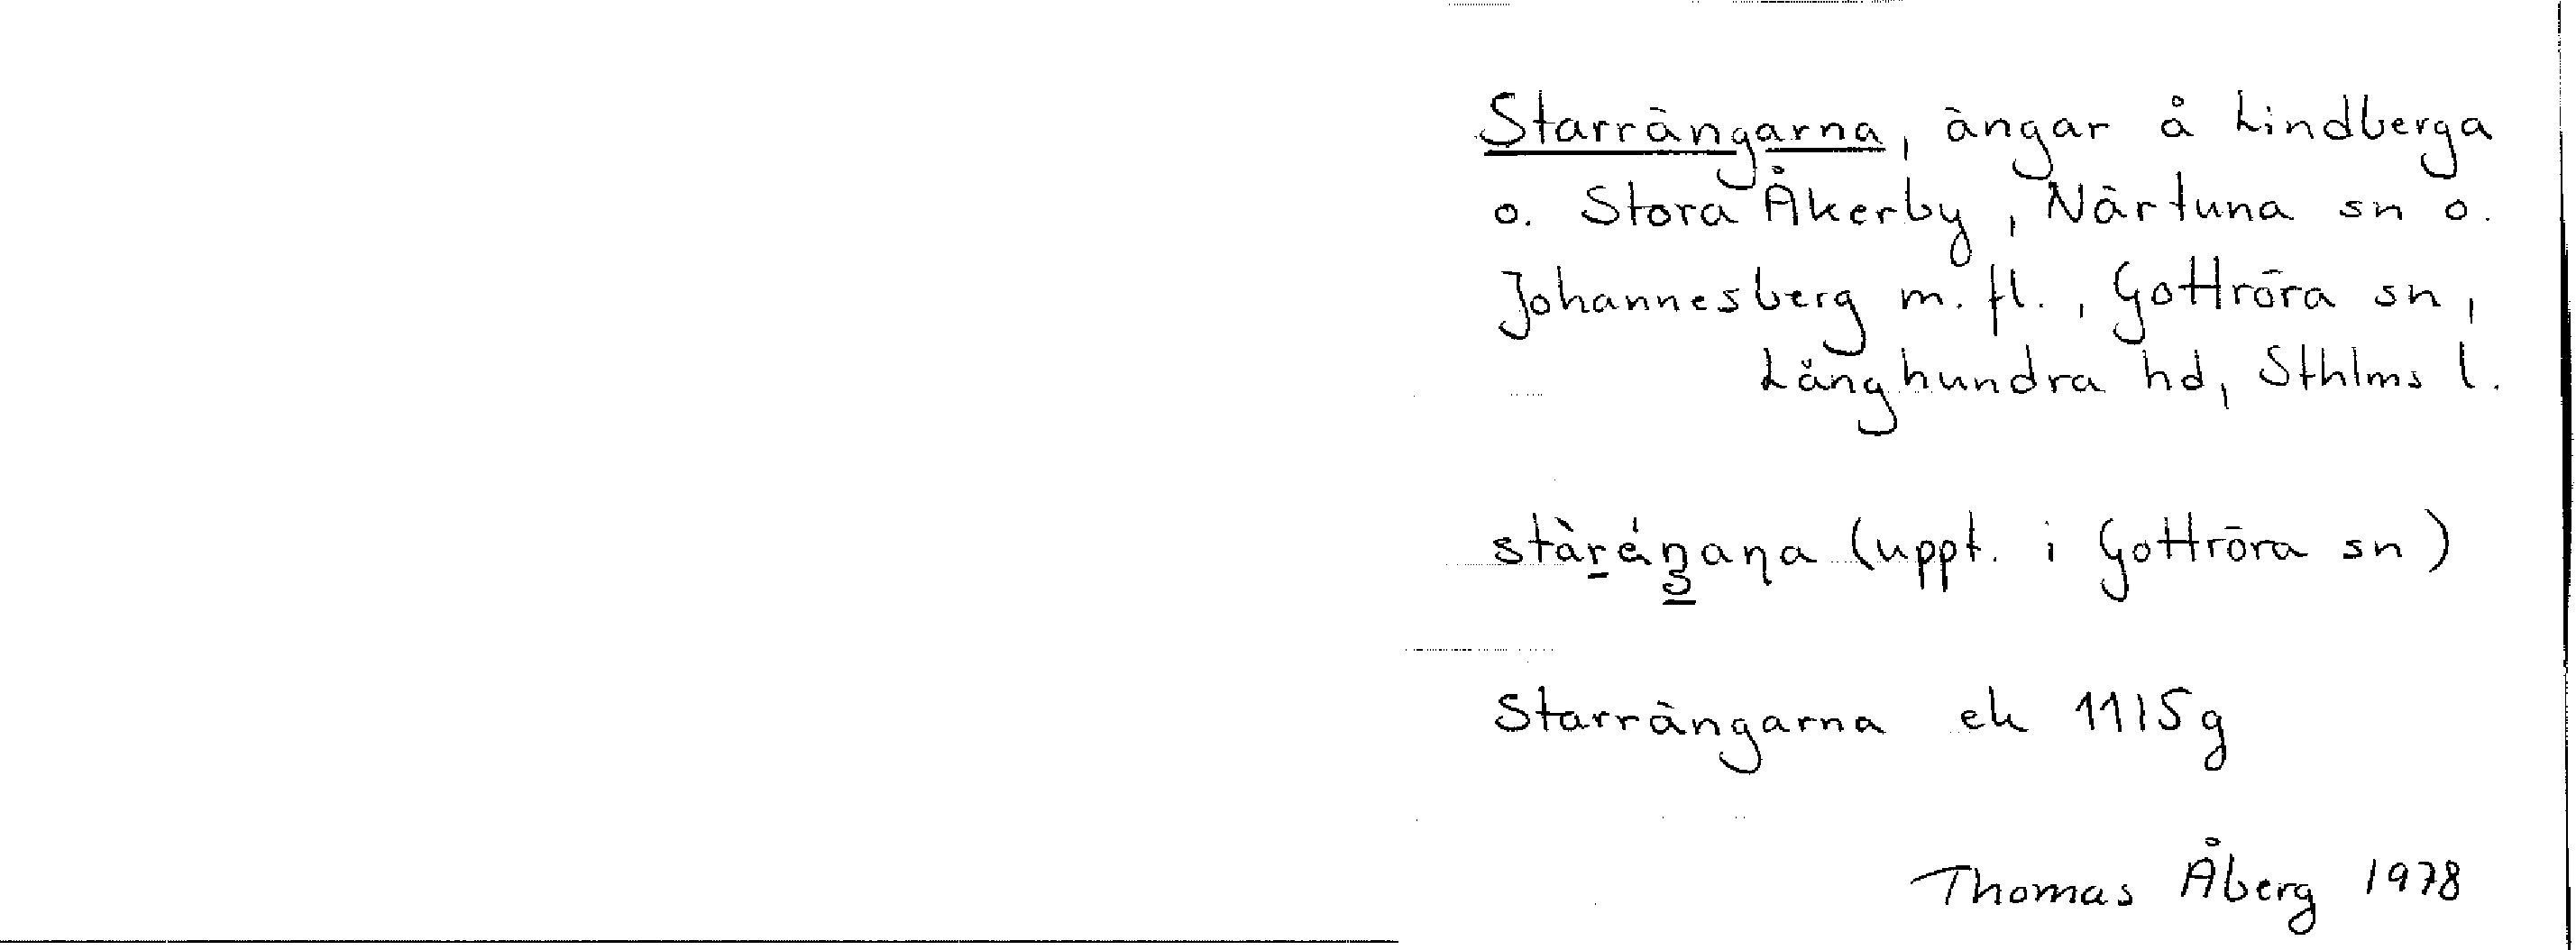 Starrängarna, ängar å Lindberga
o. Stora Åkerby, Närtuna sn o.
Johannesberg m.fl., Gottröra sn,
Långhundra hd, Sthlms l.
(uppt. i Gottröra sn)
Starrängarna ek 1115g
Thomas Åberg 1978